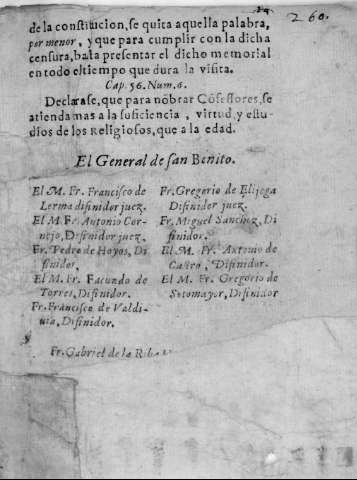 260.
de la constitucion, se quita aquella palabra,
por menor, y que para cumplir con la dicha
censura, basta presentar el dicho memorial
en todo el tiempo que dura la visita.
Cap. 56. Num. 6.
Declarase, que para nõbrar Cõfessores, se
atienda mas a la suficiencia, virtud, y estu-
dios de los Religiosos, que a la edad.
El General de san Benito.
El M. Fr. Francisco de
Lerma difinidor juez.
El M. Fr. Antonio Cor-
nejo, Definidor juez.
Fr. Pedro de Hoyos, Di
finidor.
El M. Fr. Facundo de
Torres, Difinidor.
Fr. Francisco de Valdi-
uia, Difinidor.
Fr. Gregorio de
Difinidor juez.
Fr. Miguel Sanchez, Di
finidor.
El M. Fr. Antonio de
Castro, Difinidor.
El M. Fr. Gregorio de
Sotomayor, Difinidor
Fr. Gabriel de la